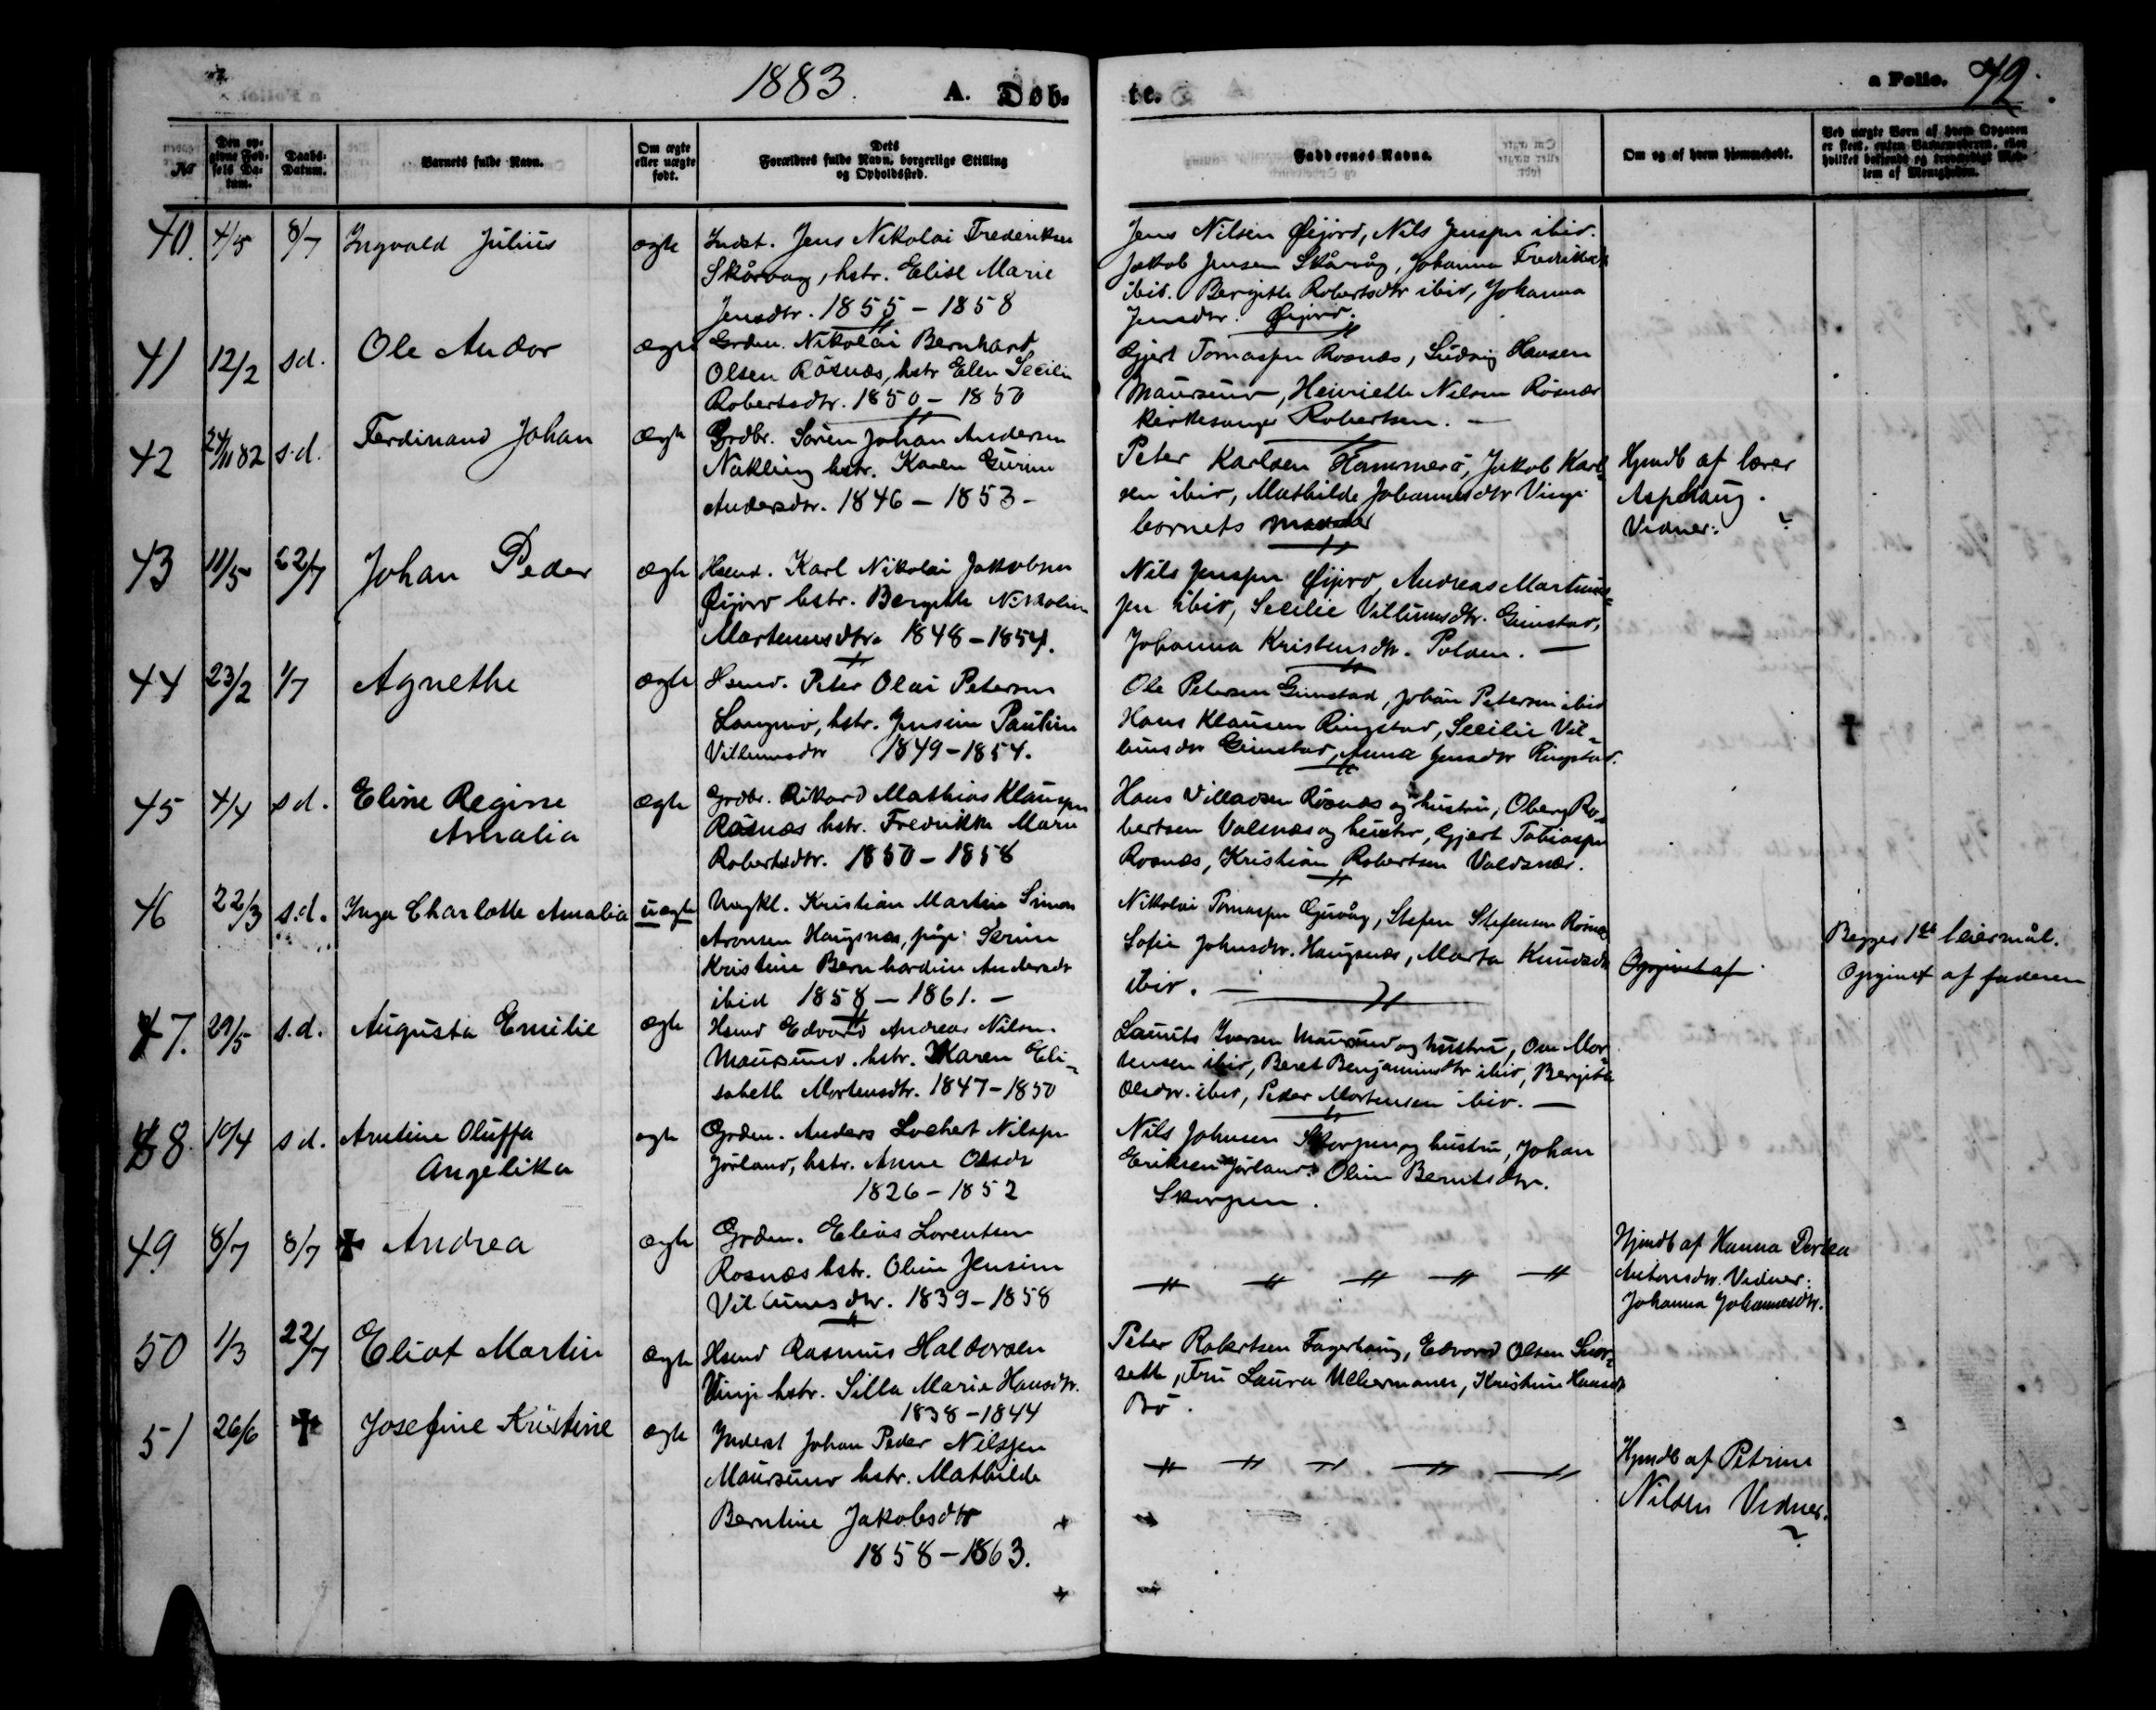 1883. A. Døb-
te. a Folio. 72.
No
Den op-
givne Fød-
sels Da-
tum.
Daabs-
Datum.
Barnets fulde Navn.
Om ægte
eller uægte
født.
Dets
Forældres fulde Navn, borgerlige Stilling
og Opholdssted.
Faddernes Navne.
Om og af hvem hjemmedøbt.
Ved uægte Børn af hvem Opgaven
er skeet, enten Barnemoderen, eller
hvilket bekjendt og troværdigt Med-
lem af Menigheden.
40. 4/5 8/7 Ingvald Julius ægte Inderst. Jens Nikolai Frederiksen
Skårvåg, hstr. Elise Marie
Jensdtr. 1855 - 1858
Jens Nilsen Øijord, Nils Jenssen ibid.
Jakob Jensen Skårvåg, Johanna Fredriksdtr
ibid. Bergitte Robertsdtr ibid, Johanna
Jensdtr. Øijord.
41 12/2 sd. Ole Andor ægte Grdm. Nikolai Bernhard
Olsen Rösnæs, hstr Elen Secilie
Robertsdtr. 1850 - 1850
Gjert Tomassen Rosnæs, Ludvig Hansen
Maursund, Henriette Nilsen Rösnæs
kirkesanger Robertsen. -
42 24/11 82 s.d. Ferdinand Johan ægte Grdbr. Sören Johan Andersen
Nakling hstr. Karen Gurine
Andersdtr. 1846 - 1853 -
Peter Karlsen Hammerö, Jakob Karl-
sen ibid, Mathilde Johannesdtr Vinje
barnets moder
Hjmdb af lærer
Asphaug.
Vidner: ?
43 11/5 22/7 Johan Peder ægte Hsmd. Karl Nikolai Jakobsen
Øijord hstr. Bergitte Nikoline
Martinusdtr. 1848 - 1854.
Nils Jenssen Øijord, Andreas Martinus-
sen ibid, Secilie Villumsdtr. Gimstad,
Johanna Kristensdtr. Polden. -
44 23/2 1/7 Agnethe ægte Hsmd. Peter Olai Petersen
hstr. Jensine Pauline
Villumsdtr 1849 - 1854.
Ole Petersen Gimstad, Johan Petersen ibid
Hans Klausen Ringstad, Secilie Vil-
lumsdtr Gimstad, Anna Jensdtr Ringstad.
45 4/4 sd. Eline Regine
Amalia
ægte Grdbr. Rikard Mathias Klaussen
Rösnæs hstr. Fredrikke Marie
Robertsdtr. 1850 - 1858
Hans Villadsen Rösnæs og hustru, Oberg Ro-
bertsen Valsnæs og hustru, Gjert Tobiassen
Rosnæs, Kristian Robertsen Valdsnæs.
46 22/3 s.d. Inga Charlotte Amalia uægte Ungkl. Kristian Martin Simon
Aronsen Haugsnæs, pige: Serine
Kristine Bernhardine Andersdtr
ibid 1858 - 1861. -
Nikolai Tomassen Gjuvåg, Stefen Stefensen Rösnæs
Sofie Johnsdtr. Haugsnæs, Marta Knudsdtr
ibid. -
Opgivet af
Begges 1ste leiermål.
Opgivet af faderen
47. 29/5 s.d. Augusta Emilie ægte Hsmd Edvard Andreas Nilsen
Maursund. hstr. Karen Eli-
sabeth Mortensdtr. 1847 - 1850
Laurits Iversen Maursund og hustru, Ove Mor-
tensen ibid, Beret Benjaminsdtr ibid, Bergitte
Olsdtr. ibid, Peder Mortensen ibid. -
48. 10/4 sd. Arntine Oluffa
Angelika
ægte Grdm. Anders Lochert Nilssen
Jørland, hstr. Anne Olsdtr
1826 - 1852
Nils Johnsen Skorpen og hustru, Johan
Eriksen Jørland. Oline Berntsdtr.
Skorpen.
49 8/7 8/7 ✝ Andrea ægte Grdm. Elias Lorentsen
Rosnæs hstr. Oline Jensine
Villumsdtr. 1839 - 1858
Hjmdb af Hanna
Antonsdtr. Vidner:
Johanna Johannesdtr.
50 1/3 22/7 Eliot Martin ægte Hsmd Rasmus Haldorsen
Vinje hstr. Silla Maria Hansdtr.
1838 - 1844
Peter Robertsen Fagerhaug, Edvard Olsen
Fru Laura Uchermann, Kristine Hansdtr
Bö.
51 26/6 ✝ Josefine Kristine ægte Inderst Johan Peder Nilssen
Maursund hstr. Mathilde
Berntine Jakobsdtr
1858 - 1863.
Hjmdb af Petrine
Nilsen Vidner.